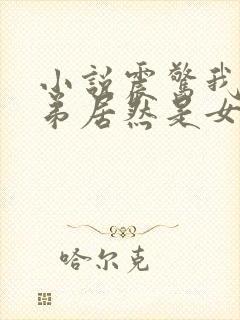 小說震驚我
弟居然是女
哈尔克